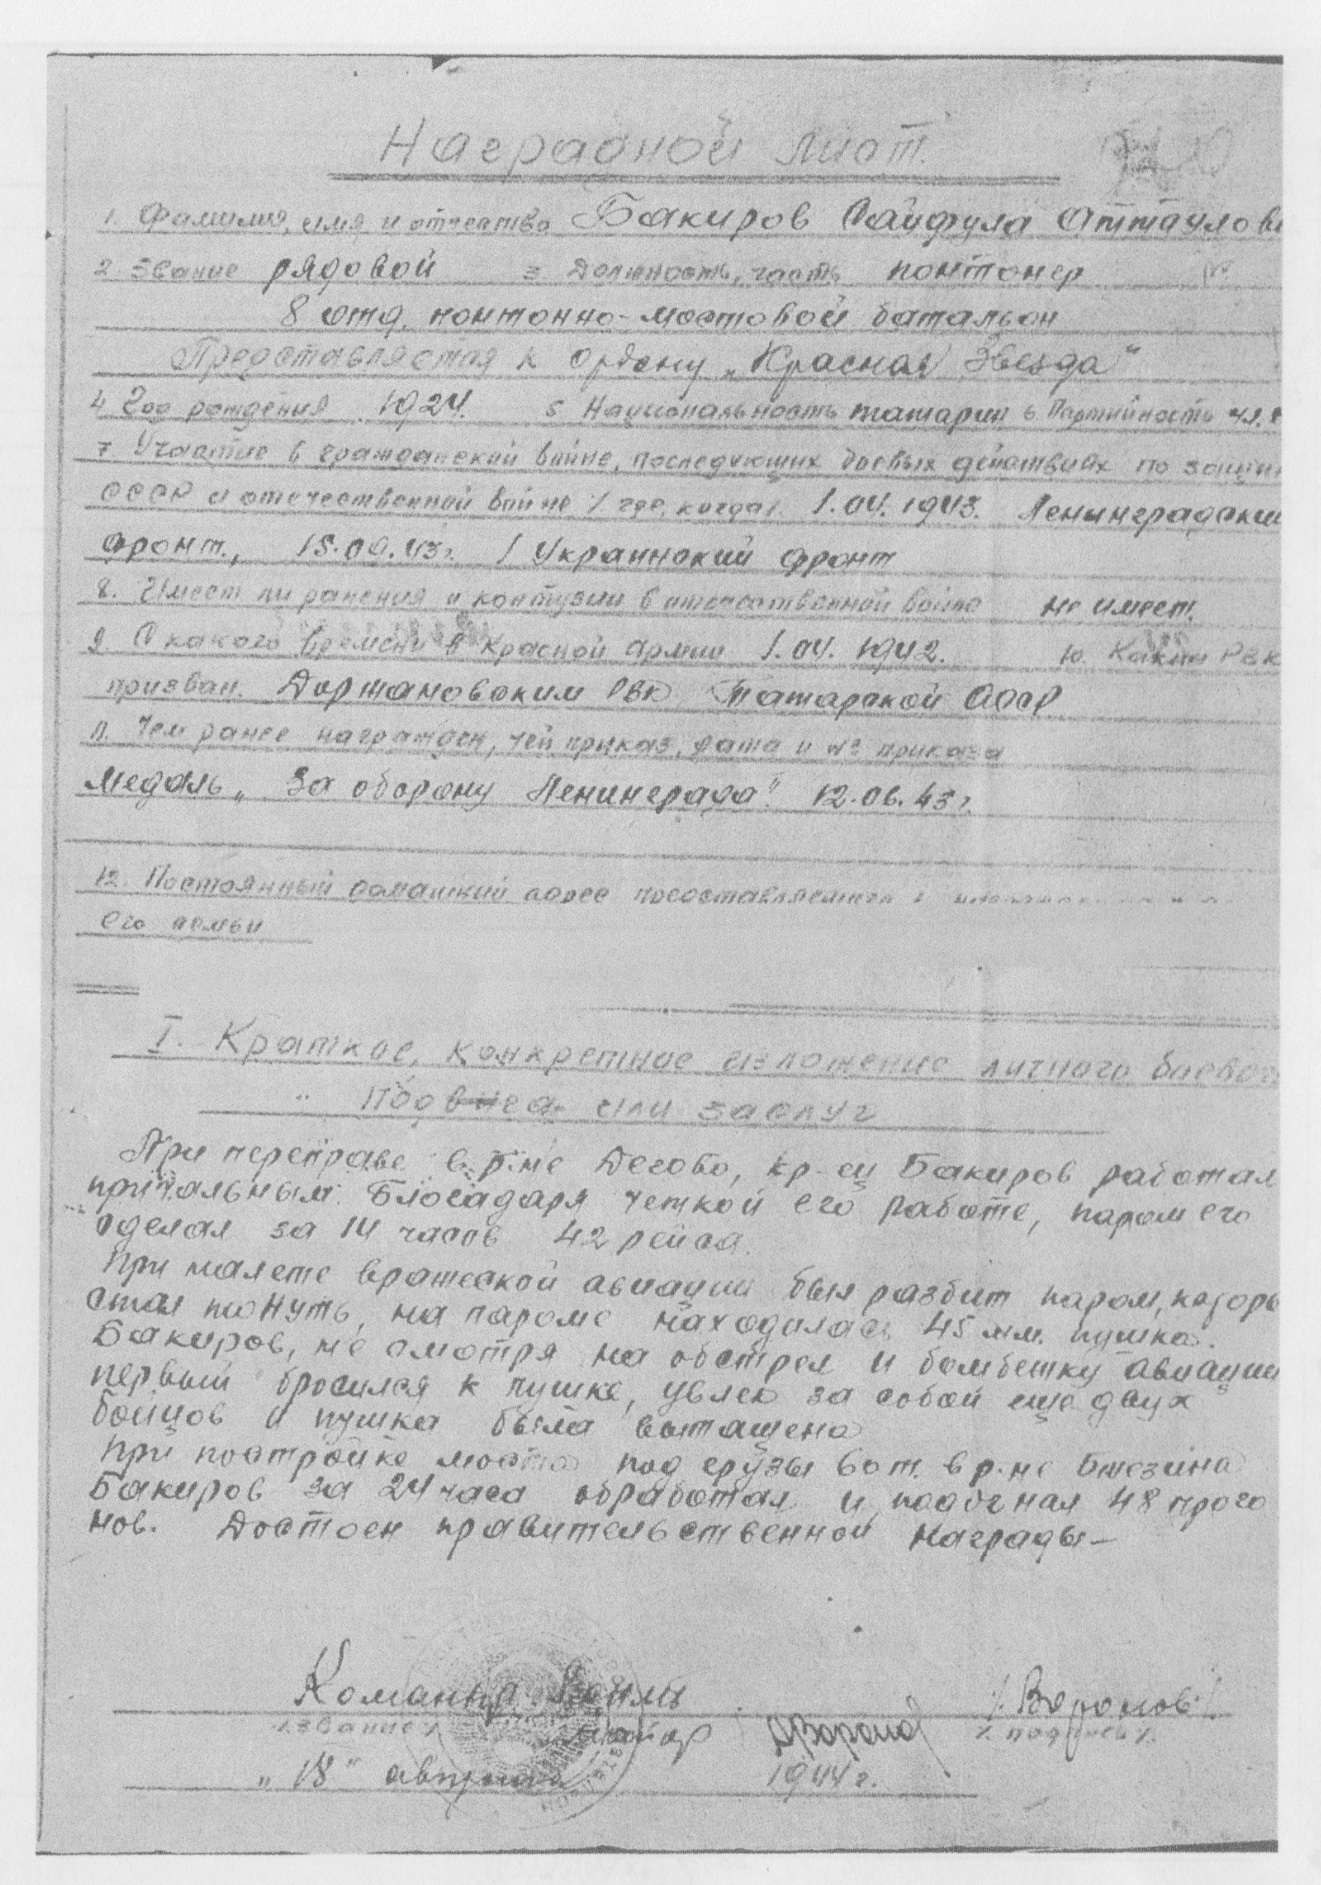 Наградной лист.
1. Фамилия, имя и отчество Бакиров Сайфула Аттаулови
2. Звание рядовой 3. Должность, часть понтонер
8 отд. понтонно-мостовой батальон
Представляется к ордену „Красная Звезда"
4. Год рождения 1924. 5. Национальность татарин 6. Партийность чл.
7. Участие в гражданской войне, последующих боевых действиях по защит
СССР и отечественной войне /где, когда/. 1.04.1943. Ленинградски
фронт., 15.09.43г. 1 Украинский фронт
8. Имеет ли ранения и контузии в отечественной войне не имеет.
9. С какого времени в Красной армии 1.04.1942. 10. Каким РВК
призван. Держановским РВК Татарской АССР
11. Чем ранее награжден, чей приказ, дата и № приказа
Медаль „За оборону Ленинграда". 12.06.43г.
12. Постоянный домашний адрес представляемого
его семьи
I. Краткое, конкретное изложение личного боевог
подвига или заслуг
При переправе в р-не Дегово, кр-ец Бакиров работал
причальным. Блогадаря четкой его работе, паром его
сделал за 14 часов 42 рейса.
При налете вражеской авиации был разбит паром, которы
стал тонуть, на пароме находилась 45 мм. пушка.
Бакиров, не смотря на обстрел и бомбежку авиации
первый бросился к пушке, увлек за собой еще двух
бойцов и пушка была вытащена
При постройке моста под грузы 60т. в р-не
Бакиров за 24 часа обработал и подогнал 48 прого
нов. Достоен правительственной награды—
Командир /Воронов/
/звание/ майор /подпись/.
„18" августа 1944г.